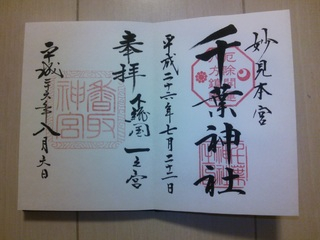 妙見本宮
千葉神社
平成二十六年七月二十二日
奉拝
下総国一之宮
香取神宮
平成二十六年八月六日